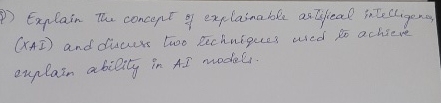 Q) Explain the concept of explainable artifical intelligence
(XAI) and discuss two techniques used to achieve
explain ability in AI models.